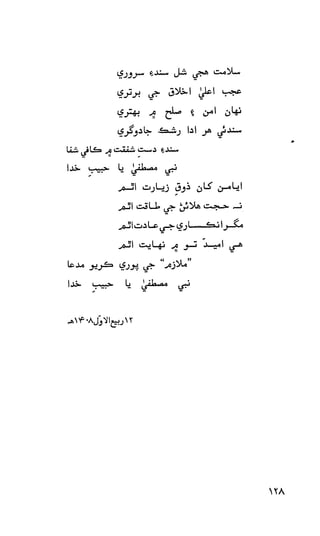 سلامت هجي شل سندءِ سروري
عجب اعليٰ اخلاق جي برتري
نهان امن ۽ صلح ۾ بهتري
سندئي هر ادا رشڪ جادوگري
سندءِ دستِ شفقت ۾ ڪافي شفا
نبي مصطفيٰ يا حبيبِ خدا
ايامن کان ذوقِ زيارت اٿم
نہ حجت هلائڻ جي طاقت اٿم
مگر انڪساري جي عادت اٿم
هي اميدّ تو ۾ نهايت اٿم
"ملازم" جي پوري ڪريو مدعا
نبي مصطفيٰ يا حبيبِ خدا
۱۲ربيع الاوّل ۱۴۰۸هـ
۱۲۸